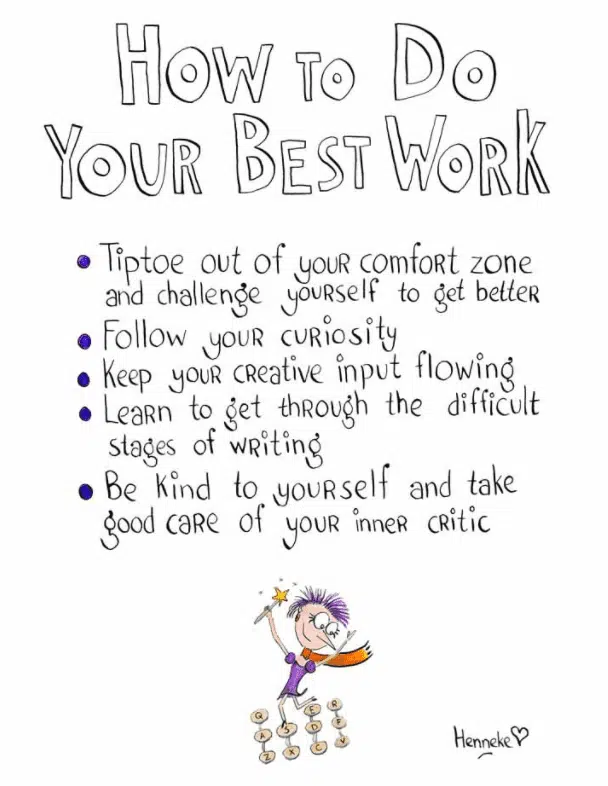 HOW TO DO
YOUR BEST WORK
• Tiptoe out of your comfort zone
and challenge yourself to get better
• Follow your curiosity
• Keep your creative input flowing
• Learn to get through the difficult
stages of writing
• Be kind to yourself and take
good care of your inner critic
Q E R
A S D F
Z X C V
Henneke